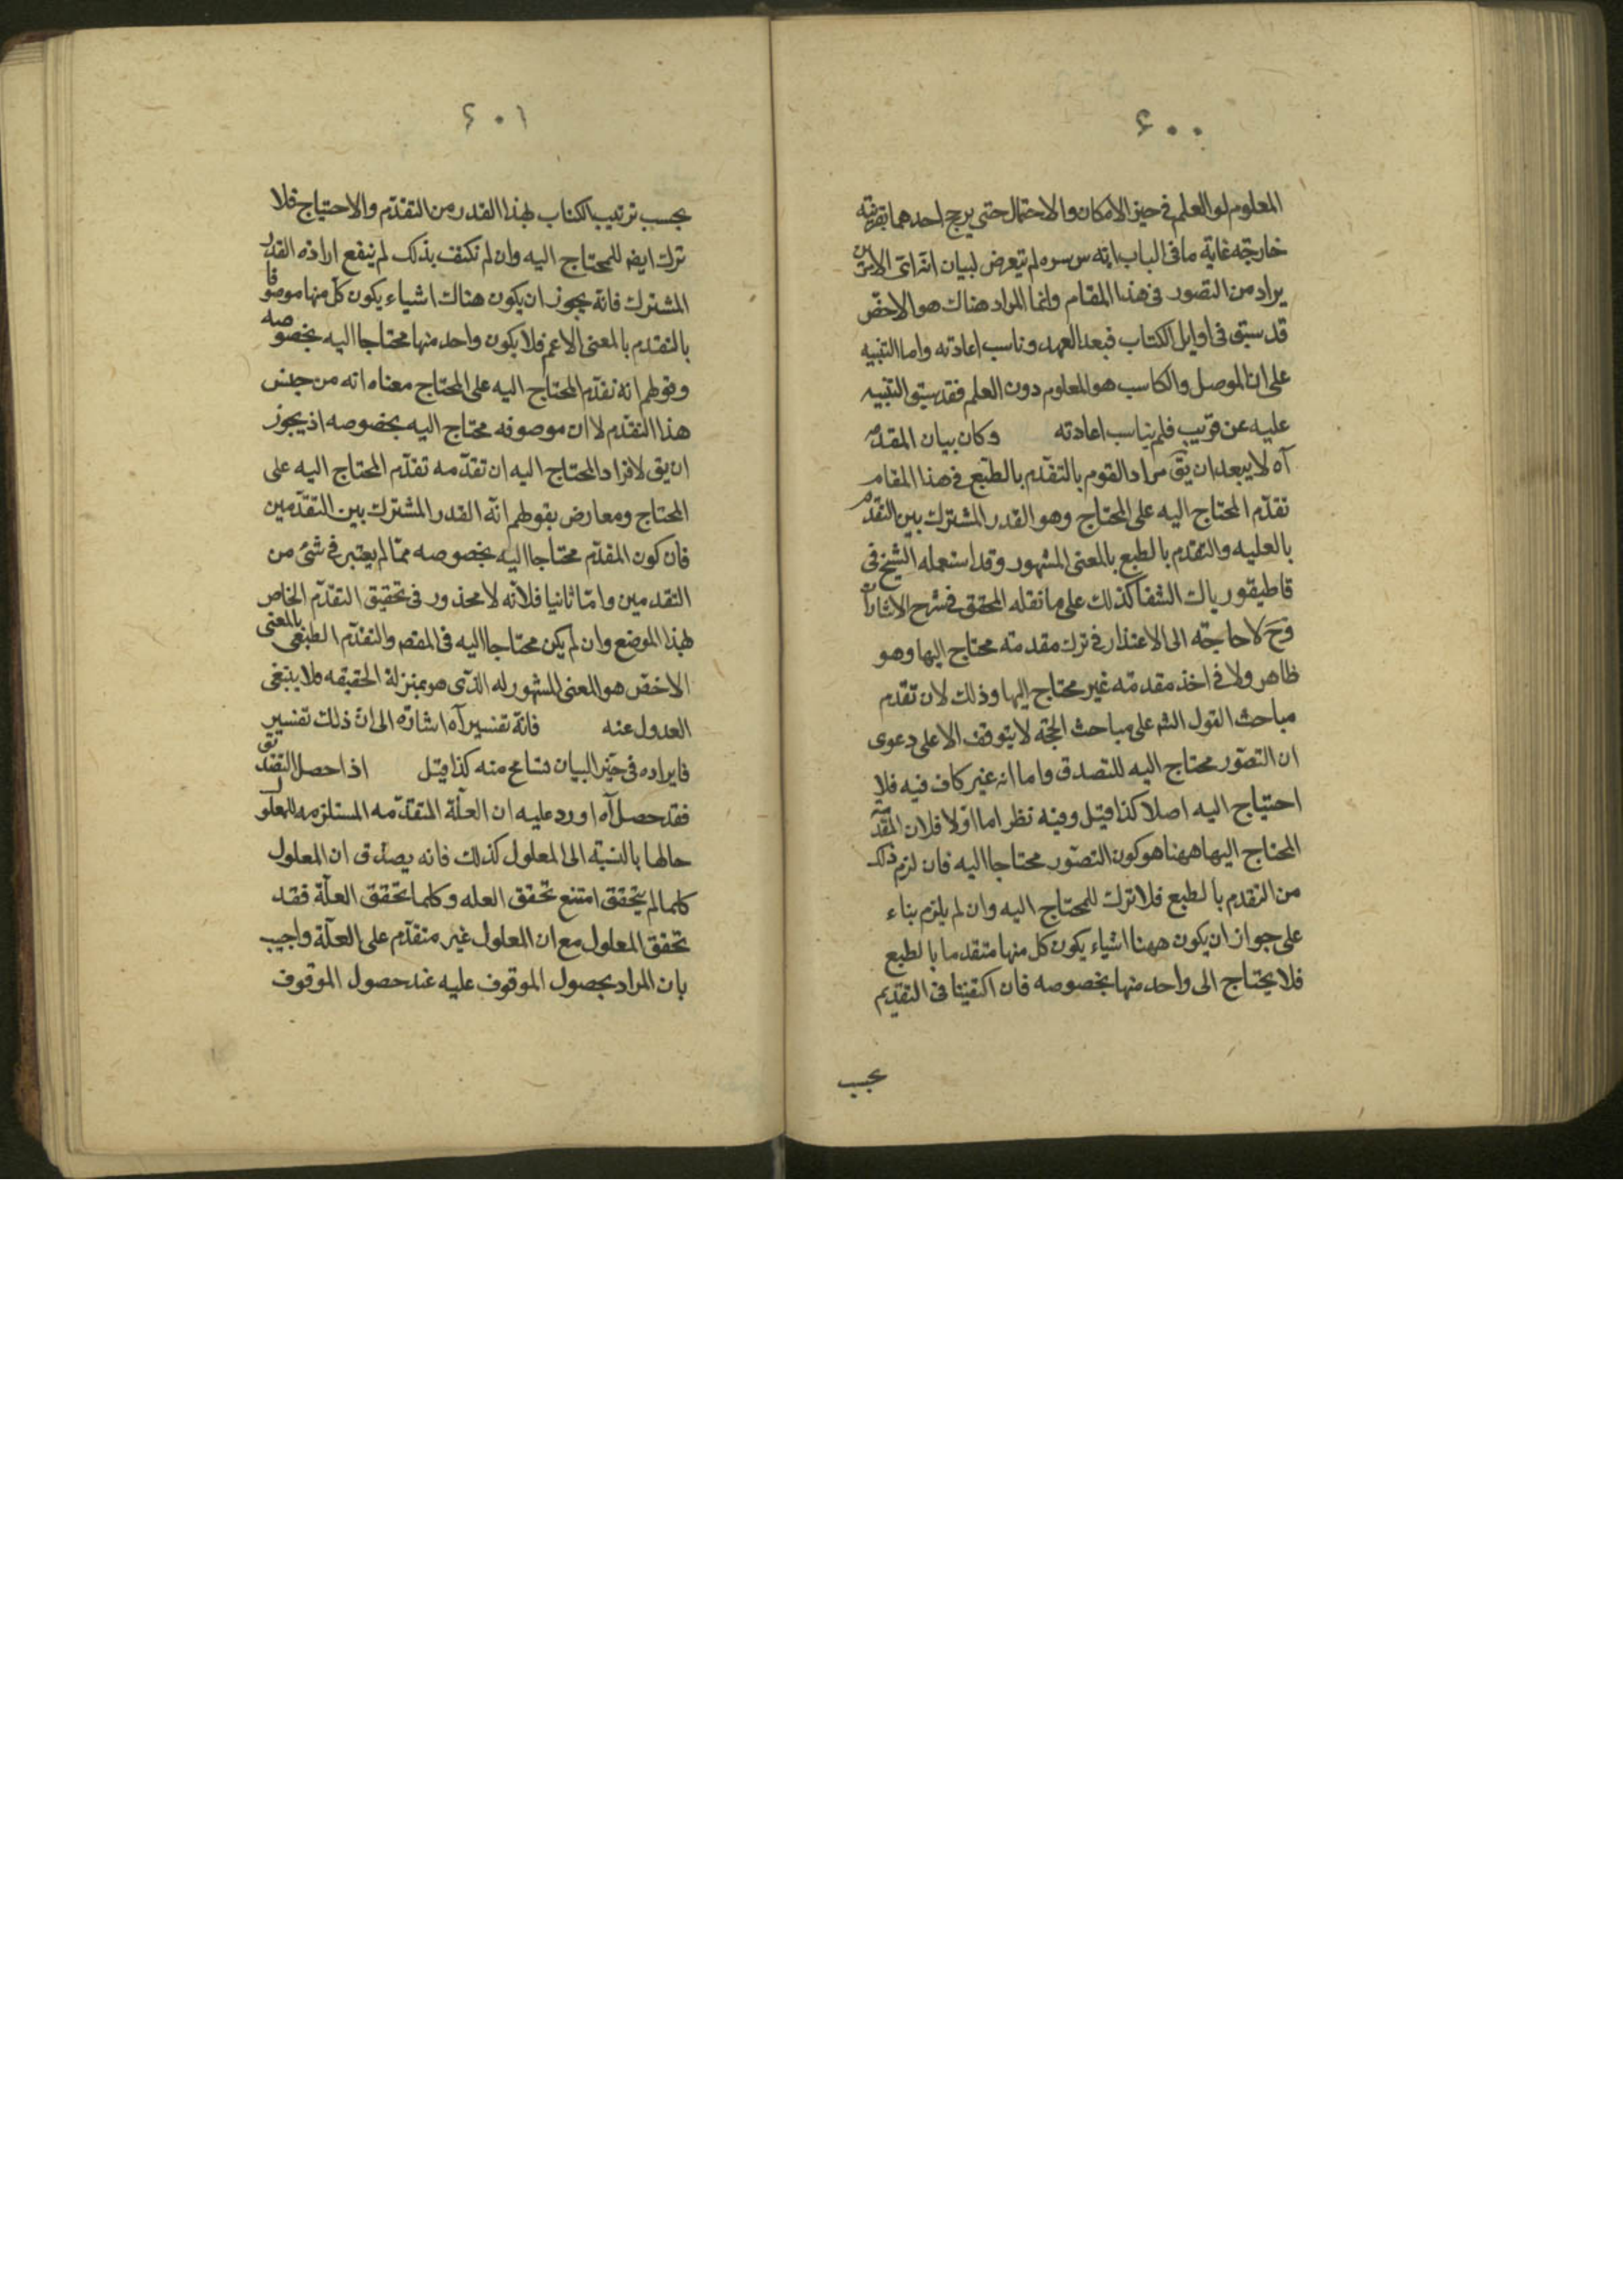 ۶۰۰
المعلوم او العلم فى حيز الامكان والاحتمال حتى يرجح احدهما بقرينة
خارجة غاية ما فى الباب انه س سره لم يتعرض لبيان ان اى الامرين
يراد من التصور فى هذا المقام وانما المراد هناك هو الاخص
قد سبق فى اوايل الكتاب فبعد العهد وناسب اعادته واما التنبيه
على ان الموصل والكاسب هو المعلوم دون العلم فقد سبق التنبيه
عليه عن قريب فلم يناسب اعادته وكان بيان المقدمة
آه لا يبعد ان يق مراد القوم بالتقدم بالطبع فى هذا المقام
تقدم المحتاج اليه على المحتاج وهو القدر المشترك بين التقدم
بالعليه والتقدم بالطبع بالمعنى المشهور وقد استعمله الشيخ فى
قاطيقورياك الشفا كذلك على ما نقله المحقق فى شرح الاشارات
وح لا حاجة الى الاعتذار فى ترك مقدمته محتاج اليها وهو
ظاهر ولا فى اخذ مقدمة غير محتاج اليها وذلك لان تقدم
مباحث القول الشه على مباحث الحجة لا يتوقف الا على دعوى
ان التصور محتاج اليه للتصدق واما انه غير كاف فيه فلا
احتياج اليه اصلا كذا قيل وفيه نظر اما اولا فلان المقدمة
المحتاج اليها ههنا هو كون التصور محتاجا اليه فان لزم ذلك
من التقدم بالطبع فلا ترك للمحتاج اليه وان لم يلزم بناء
على جواز ان يكون ههنا اشياء يكون كل منها متقدما بالطبع
فلا يحتاج الى واحد منها بخصوصه فان اكتفينا فى التقديم
بحسب
۶۰۱
بحسب ترتيب الكتاب لهذا القدر من التقدم والاحتياج فلا
ترك ايضا للمحتاج اليه وان لم نكتف بذلك لم ينفع ارادة القدر
المشترك فانه يجوز ان يكون هناك اشياء يكون كل منها موصوفا
بالتقدم بالمعنى الاعم فلا يكون واحد منها محتاجا اليه بخصوصه
وقولهم انه تقدم المحتاج اليه على المحتاج معناه انه من جنس
هذا التقدم لا ان موصوفه محتاج اليه بخصوصه اذ يجوز
ان يق لافراد المحتاج اليه ان تقدمه تقدم المحتاج اليه على
المحتاج ومعارض بقولهم انه القدر المشترك بين التقدمين
فان كون المقدم محتاجا اليه بخصوصه مما لم يعتبر فى شئ من
التقدمين واما ثانيا فلانه لا محذور فى تحقيق التقدم الخاص
لهذا الموضع وان لم يكن محتاجا اليه فى المقصم والتقدم الطبيعى بالمعنى
الاخص هو المعنى المشهور له الذى هو بمنزلة الحقيقه فلا ينبغى
العدول عنه فانه تفسير آه اشارة الى ان ذلك تفسير
فايراده فى حيز البيان تسامح منه كذا قيل اذا حصل التقدم
فقد حصل آه اورد عليه ان العلة المتقدمه المستلزمه للمعلول
حالها بالنسبة الى المعلول كذلك فانه يصدق ان المعلول
كلما لم يتحقق امتنع تحقق العله وكلما تحقق العلة فقد
تحقق المعلول مع ان المعلول غير متقدم على العلة واجيب
بان المراد بحصول الموقوف عليه عند حصول الموقوف